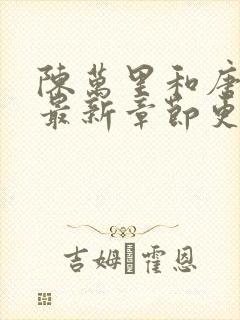 陳萬里和唐
最新章節更
吉姆·霍恩